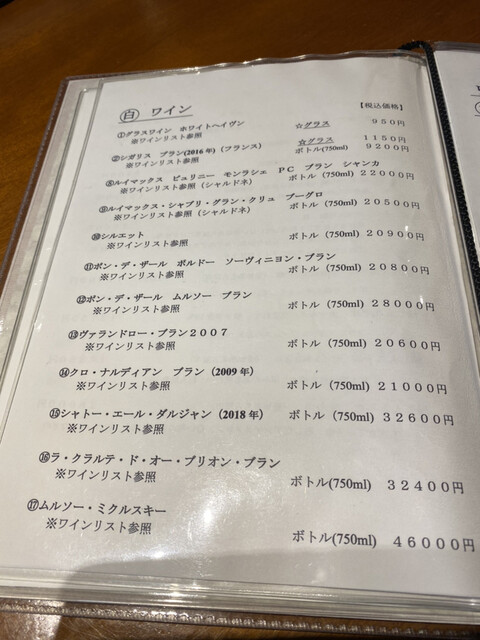 白 ワイン
【税込価格】
①グラスワイン ホワイトヘイヴン ☆グラス 950円
※ワインリスト参照
☆グラス 1150円
②シガリス ブラン(2016年)(フランス) ボトル(750ml) 9200円
※ワインリスト参照
⑧ルイマックス ピュリニー モンラシェ PC ブラン シャンカ
※ワインリスト参照(シャルドネ) ボトル (750ml) 22000円
⑨ルイマックス・シャブリ・グラン・クリュ ブーグロ
※ワインリスト参照(シャルドネ) ボトル (750ml) 20500円
⑩シルエット ボトル (750ml) 20900円
※ワインリスト参照
⑪ポン・デ・ザール ボルドー ソーヴィニヨン・ブラン
※ワインリスト参照 ボトル (750ml) 20800円
⑫ポン・デ・ザール ムルソー ブラン
※ワインリスト参照 ボトル (750ml) 28000円
⑬ヴァランドロー・ブラン2007
※ワインリスト参照 ボトル (750ml) 20600円
⑭クロ・ナルディアン ブラン (2009年)
※ワインリスト参照 ボトル (750ml) 21000円
⑮シャトー・エール・ダルジャン (2018年) ボトル (750ml) 32600円
※ワインリスト参照
⑯ラ・クラルテ・ド・オー・ブリオン・ブラン
※ワインリスト参照 ボトル(750ml) 32400円
⑰ムルソー・ミクルスキー
※ワインリスト参照 ボトル(750ml) 46000円